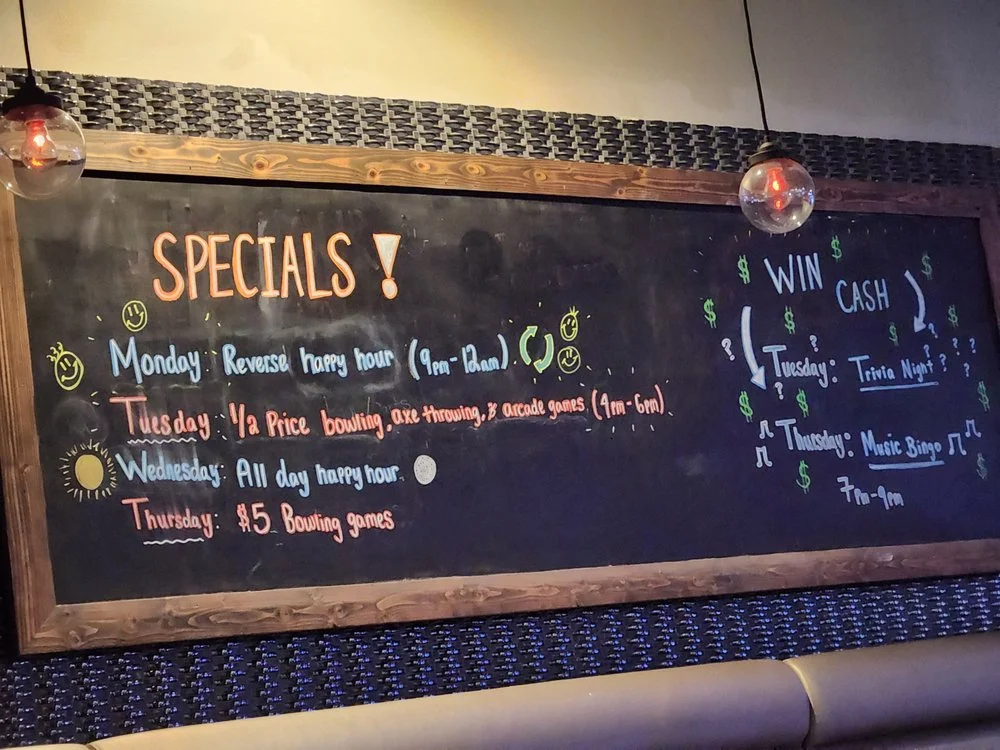 SPECIALS!
Monday: Reverse happy hour (9pm-12am)
Tuesday: 1/2 Price bowling, axe throwing, & arcade games (4pm-6pm)
Wednesday: All day happy hour
Thursday: $5 Bowling games
WIN CASH
Tuesday: Trivia Night
Thursday: Music Bingo
7pm-9pm